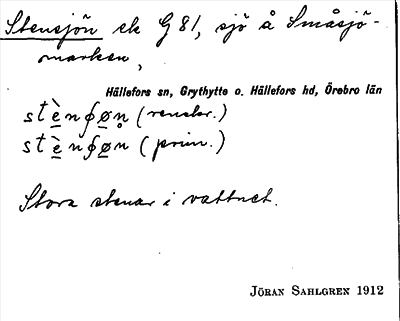 Stensjön ek G 81, sjö å Småsjö-
marken,
Hällefors sn, Grythytte o. Hällefors hd, Örebro län
stɛ̀nʃøn̥ (renskr.)
stɛ̀nʃøn (prim.)
Stora stenar i vattnet.
JÖRAN SAHLGREN 1912